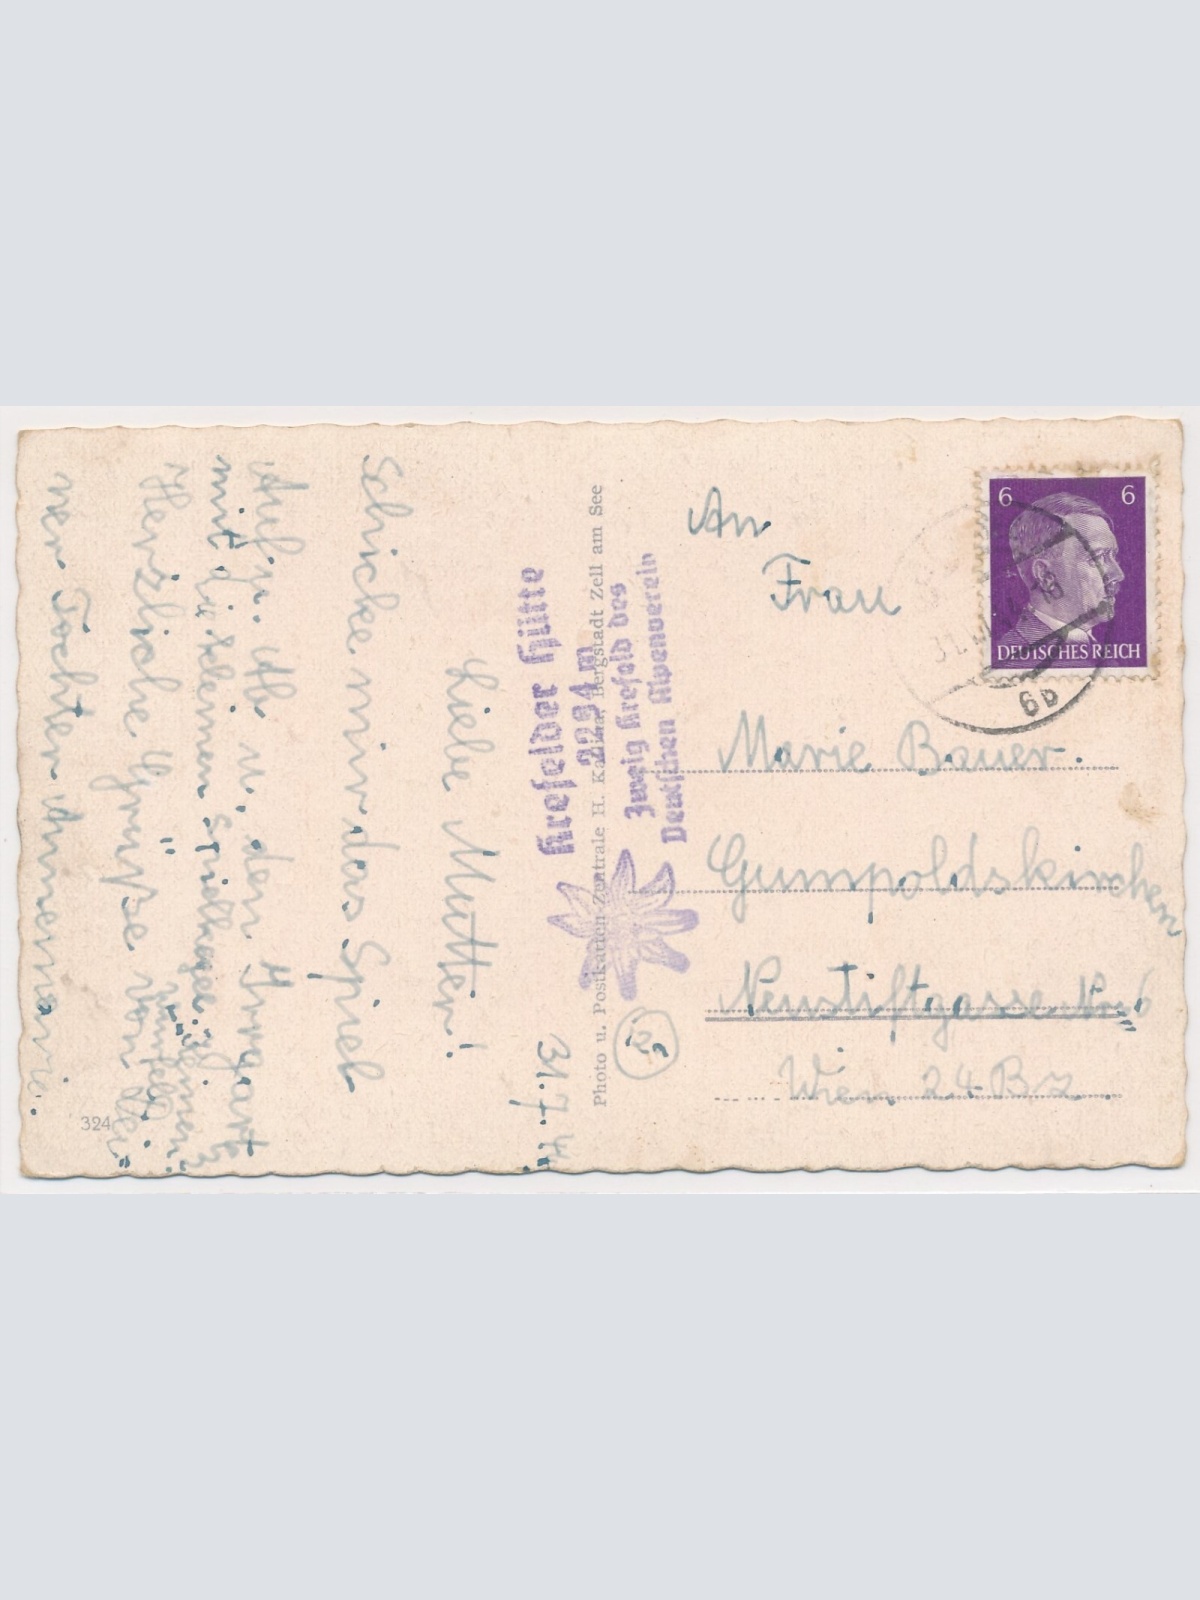 31.7.4
Liebe Mutter!
Schicke mir das Spiel
u. den
mit die kleinen
Herzliche Grüsse von dei
ner Tochter Annemarie.
324
Krefelder Hütte
2294 m
Zweig Krefeld des
Deutschen Alpenverein
Photo u. Postkarten Zentrale H. Bergstadt Zell am See
6 6
DEUTSCHES REICH
18
6b
An
Frau
Marie Bauer.
Gumpoldskirchen
Neustiftgasse Nr. 6
Wien 24. Bz.